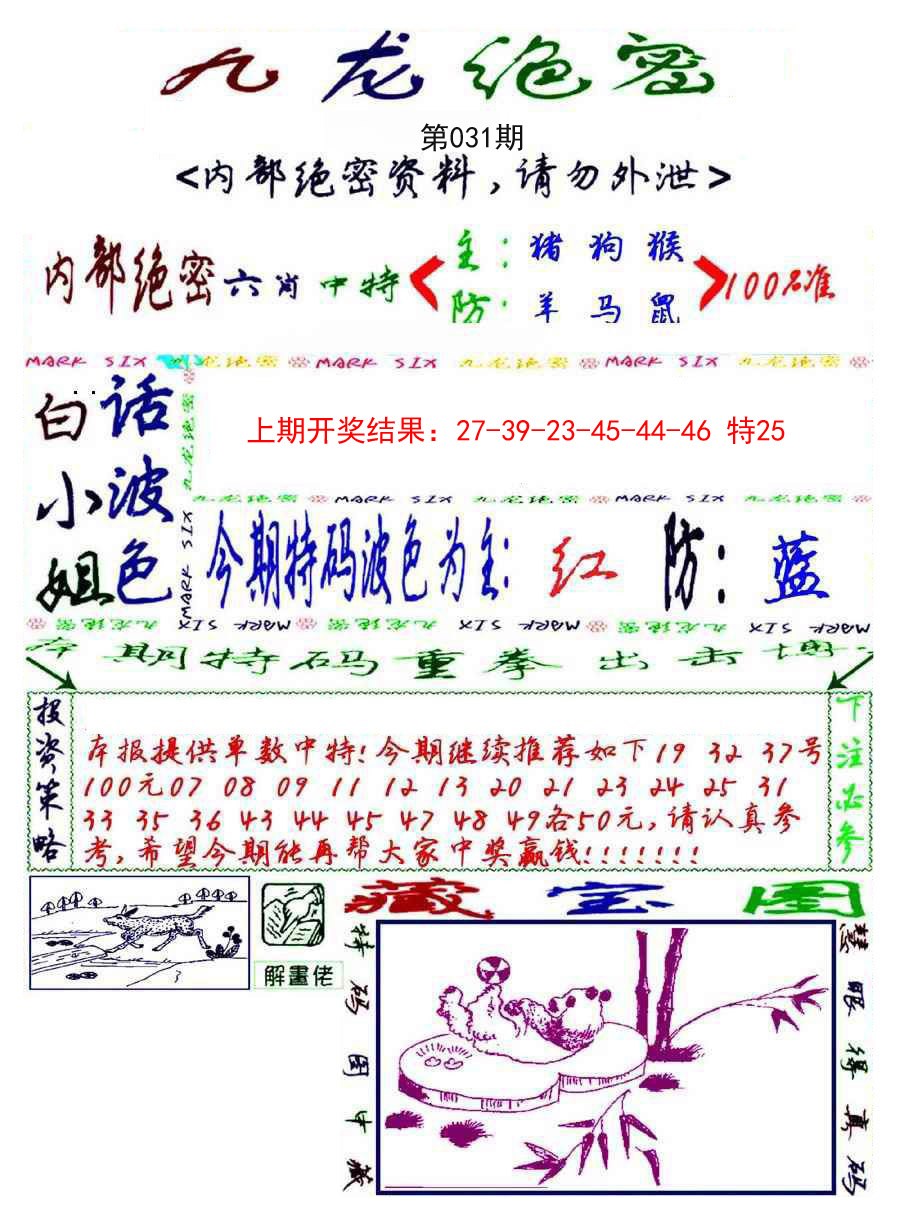 九龙绝密
第031期
<内部绝密资料,请勿外泄>
内部绝密六肖中特
主:猪狗猴
防:羊马鼠
100%准
MARK SIX 九龙绝密 MARK SIX 九龙绝密 MARK SIX 九龙绝密
白话
小波
姐色
九龙绝密
MARK SIX
上期开奖结果：27-39-23-45-44-46 特25
九龙绝密 MARK SIX 九龙绝密 MARK SIX 九龙绝密
今期特码波色为主:红 防:蓝
九龙绝密 MARK SIX 九龙绝密 MARK SIX 九龙绝密 MARK SIX
本期特码重拳出击
投资策略
本报提供单数中特!今期继续推荐如下19 32 37号
100元07 08 09 11 12 13 20 21 23 24 25 31
33 35 36 43 44 45 47 48 49各50元,请认真参
考,希望今期能再帮大家中奖赢钱!!!!!!!
下注必参
解畫佬
藏宝图
特码图中藏
慧眼得真码